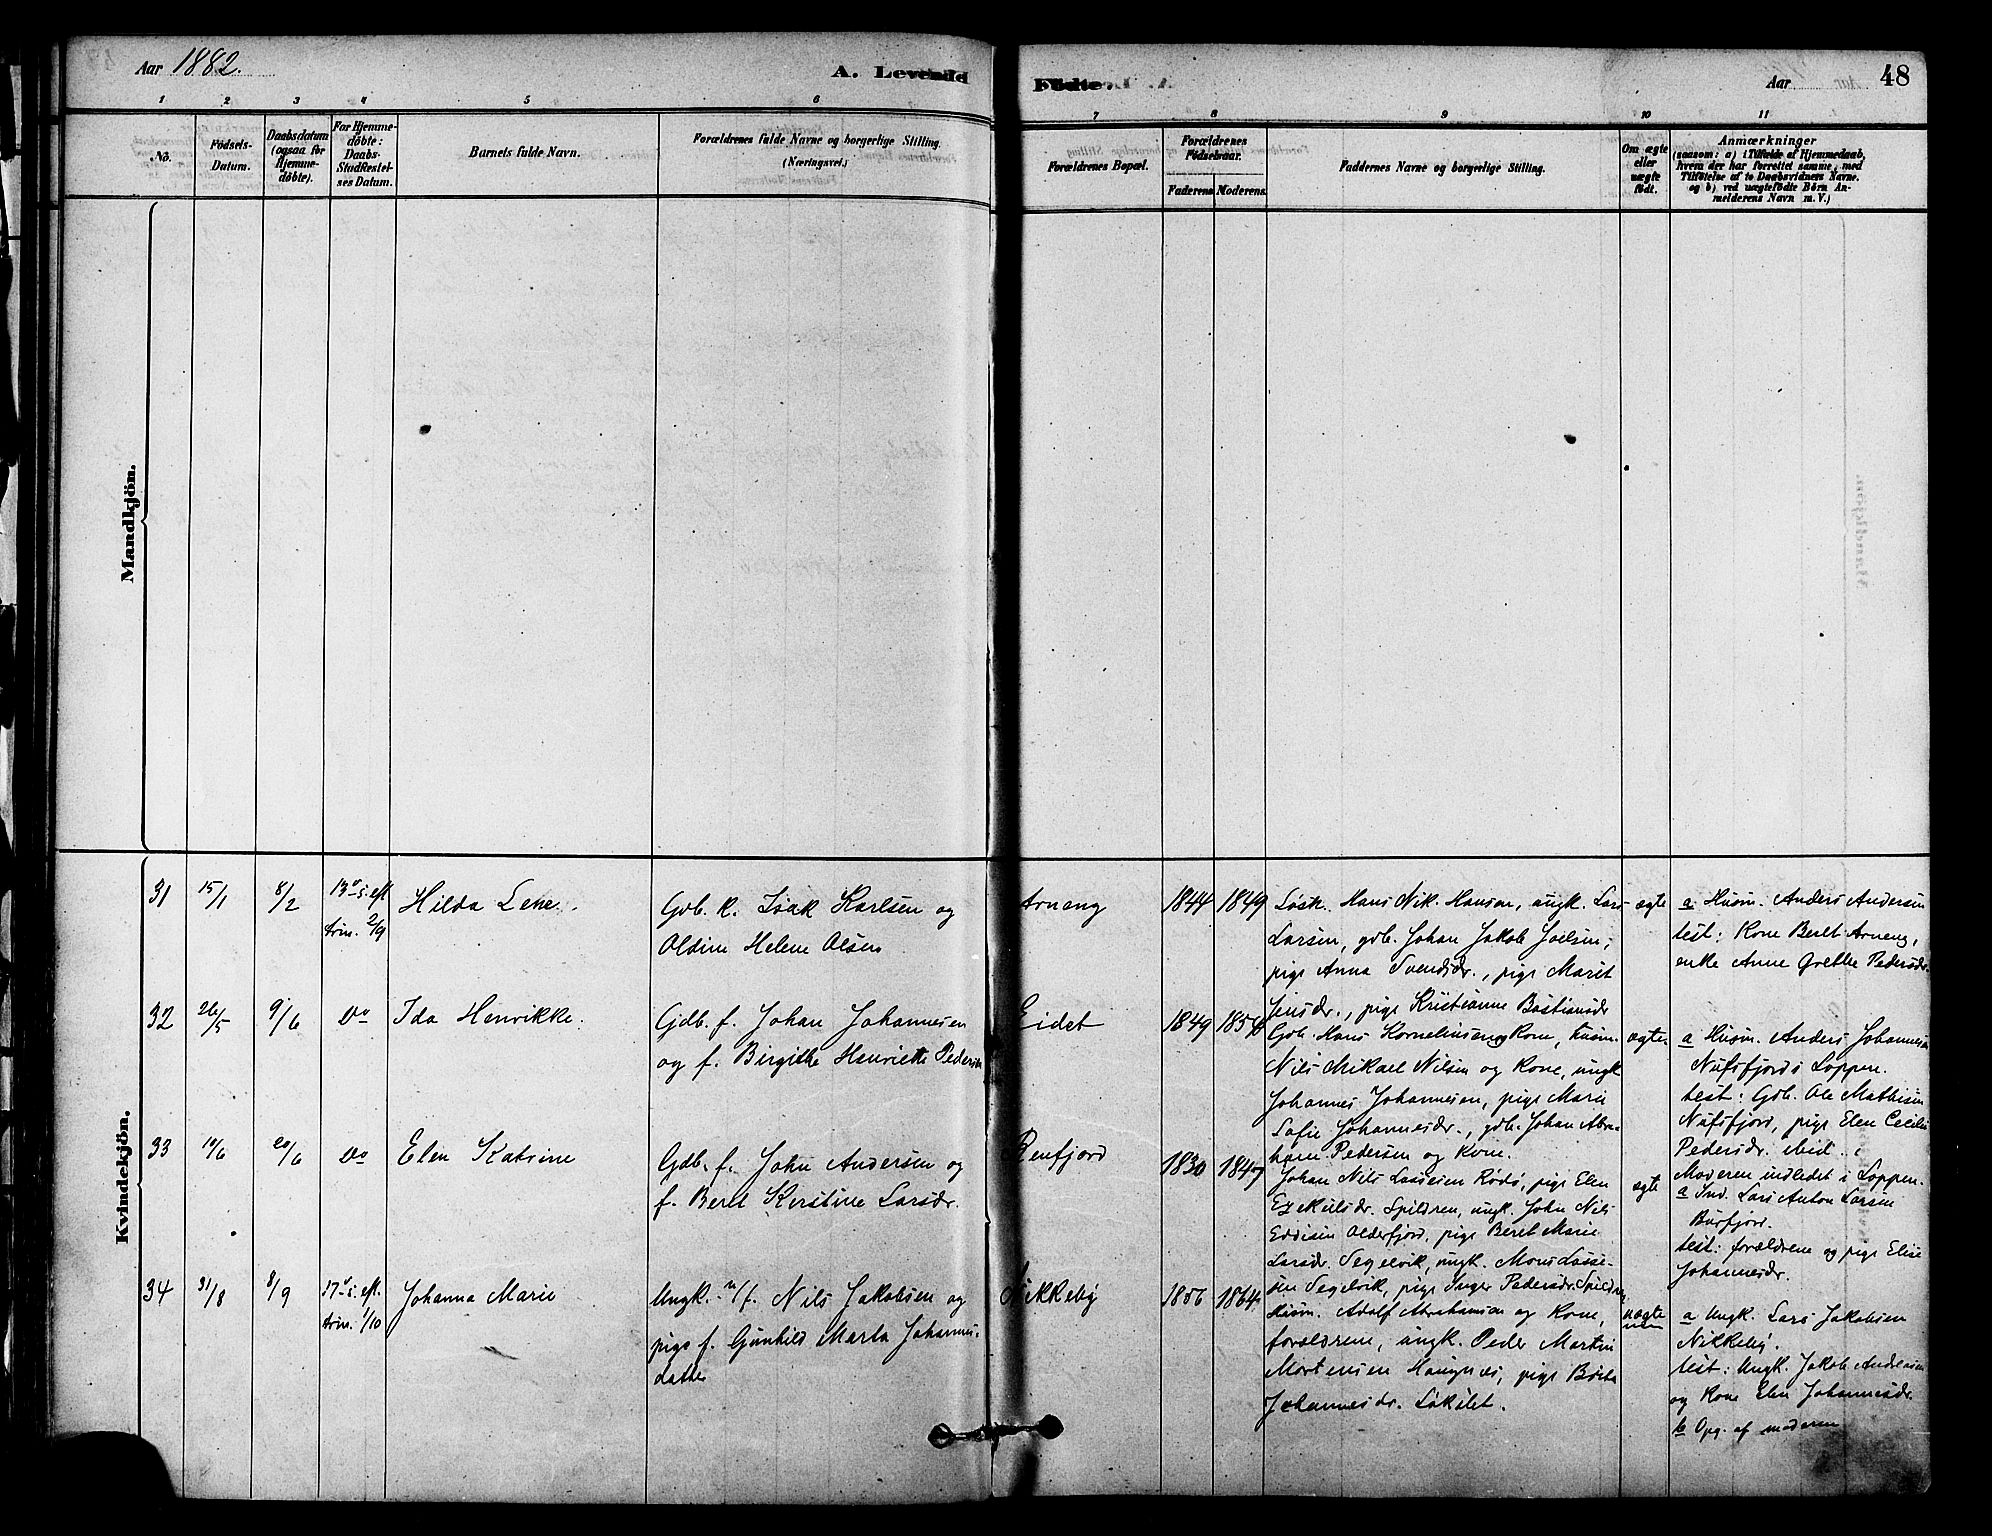 Aar 1882.
A. Levende
Födte.
Aar
48
1 2 3 4 5 6
7 8 9 10 11
No.
Födsels-
Datum.
Daabsdatum
(ogsaa for
Hjemme-
döbte).
For Hjemme-
döbte:
Daabs-
Stadfæstel-
ses Datum.
Barnets fulde Navn.
Forældrenes fulde Navne og borgerlige Stilling.
(Næringsvei.)
Forældrenes Bopæl.
Forældrenes
Födselsaar.
Faderens
Moderens.
Faddernes Navne og borgerlige Stilling.
Om ægte
eller
uægte
födt.
Anmærkninger
(saasom: a) i Tilfælde af Hjemmedaab,
hvem der har forrettet samme, med
Tilföielse af to Daabsvidners Navne,
og b) ved uægtefödte Börn An-
melderens Navn m. V.)
Mandkjön.
Kvindekjön.
31
15/1
8/2
13 s. eft.
trin. 3/9
Hilda Lene.
Gdb. k. Isak Karlsen og
Oldine Helene Olsen
Arnæng
1844
1849
Løsk. Hans Nik. Hansen, ungk. Lars
Larsen, gdb. Johan Jakob Joelsen,
pige Anna Svendsdr., pige Marit
Jensdr., pige Kristianne Bastiansdr
ægte
a Husm. Anders Andersen
test: Kone Beret Arneng,
enke Anne Grethe Pedersdr.
32
26/5
9/6
Do
Ida Henrikke.
Gdb. f. Johan Johannesen
og f. Birgithe Henriette Pedersen
Eidet
1849
1854
Gdb. Hans Kornelinsen og Kone, husm.
Nils Mikael Nilsen og Kone, ungk
Johannes Johannesen, pige Marie
Sofie Johannesdr., gdb. Johan Abra-
ham Pedersen og Kone.
ægte
a Husm. Anders Johannesen
Nufsfjord i Loppen.
test: Gdb. Ole Mathisen
Nufsfjord, pige Elen Cecilie
Pedersdr. ibid.
Moderen indledet i Loppen.
33
10/6
20/6
Do
Elen Katrine
Gdb. f. John Andersen og
f. Beret Kirstine Larsdr.
Renfjord
1830
1847
Johan Nils Lassesen Rødø, pige Elen
Ezekielsdr. Spildren, ungk. John Nils
Eddisen Alderfjord, pige Beret Marie
Larsdr. Segelvik, ungk. Mons Lasse-
sen Segelvik, pige Inger Pedersdr. Spildren
ægte
a Ind. Lars Anton Larsen
Burfjord.
test: forældrene og pige Elise
Johannesdr.
34
31/8
8/9
17 s. eft.
trin. 1/10
Johanna Marie
Ungk. n/f. Nils Jakobsen og
pige f. Gunhild Marta Johannes-
datter
Nikkeby
1856
1864
Husm. Adolf Abrahamsen og Kone,
forældrene, ungk. Peder Martin
Mortensen Haugnes, pige Berta
Johannesdr. Løkslet.
uægte
a Ungk. Lars Jakobsen
Nikkeby.
test: Ungk. Jakob Andreasen
og Kone Elen Johannesdr.
b Opg. af moderen